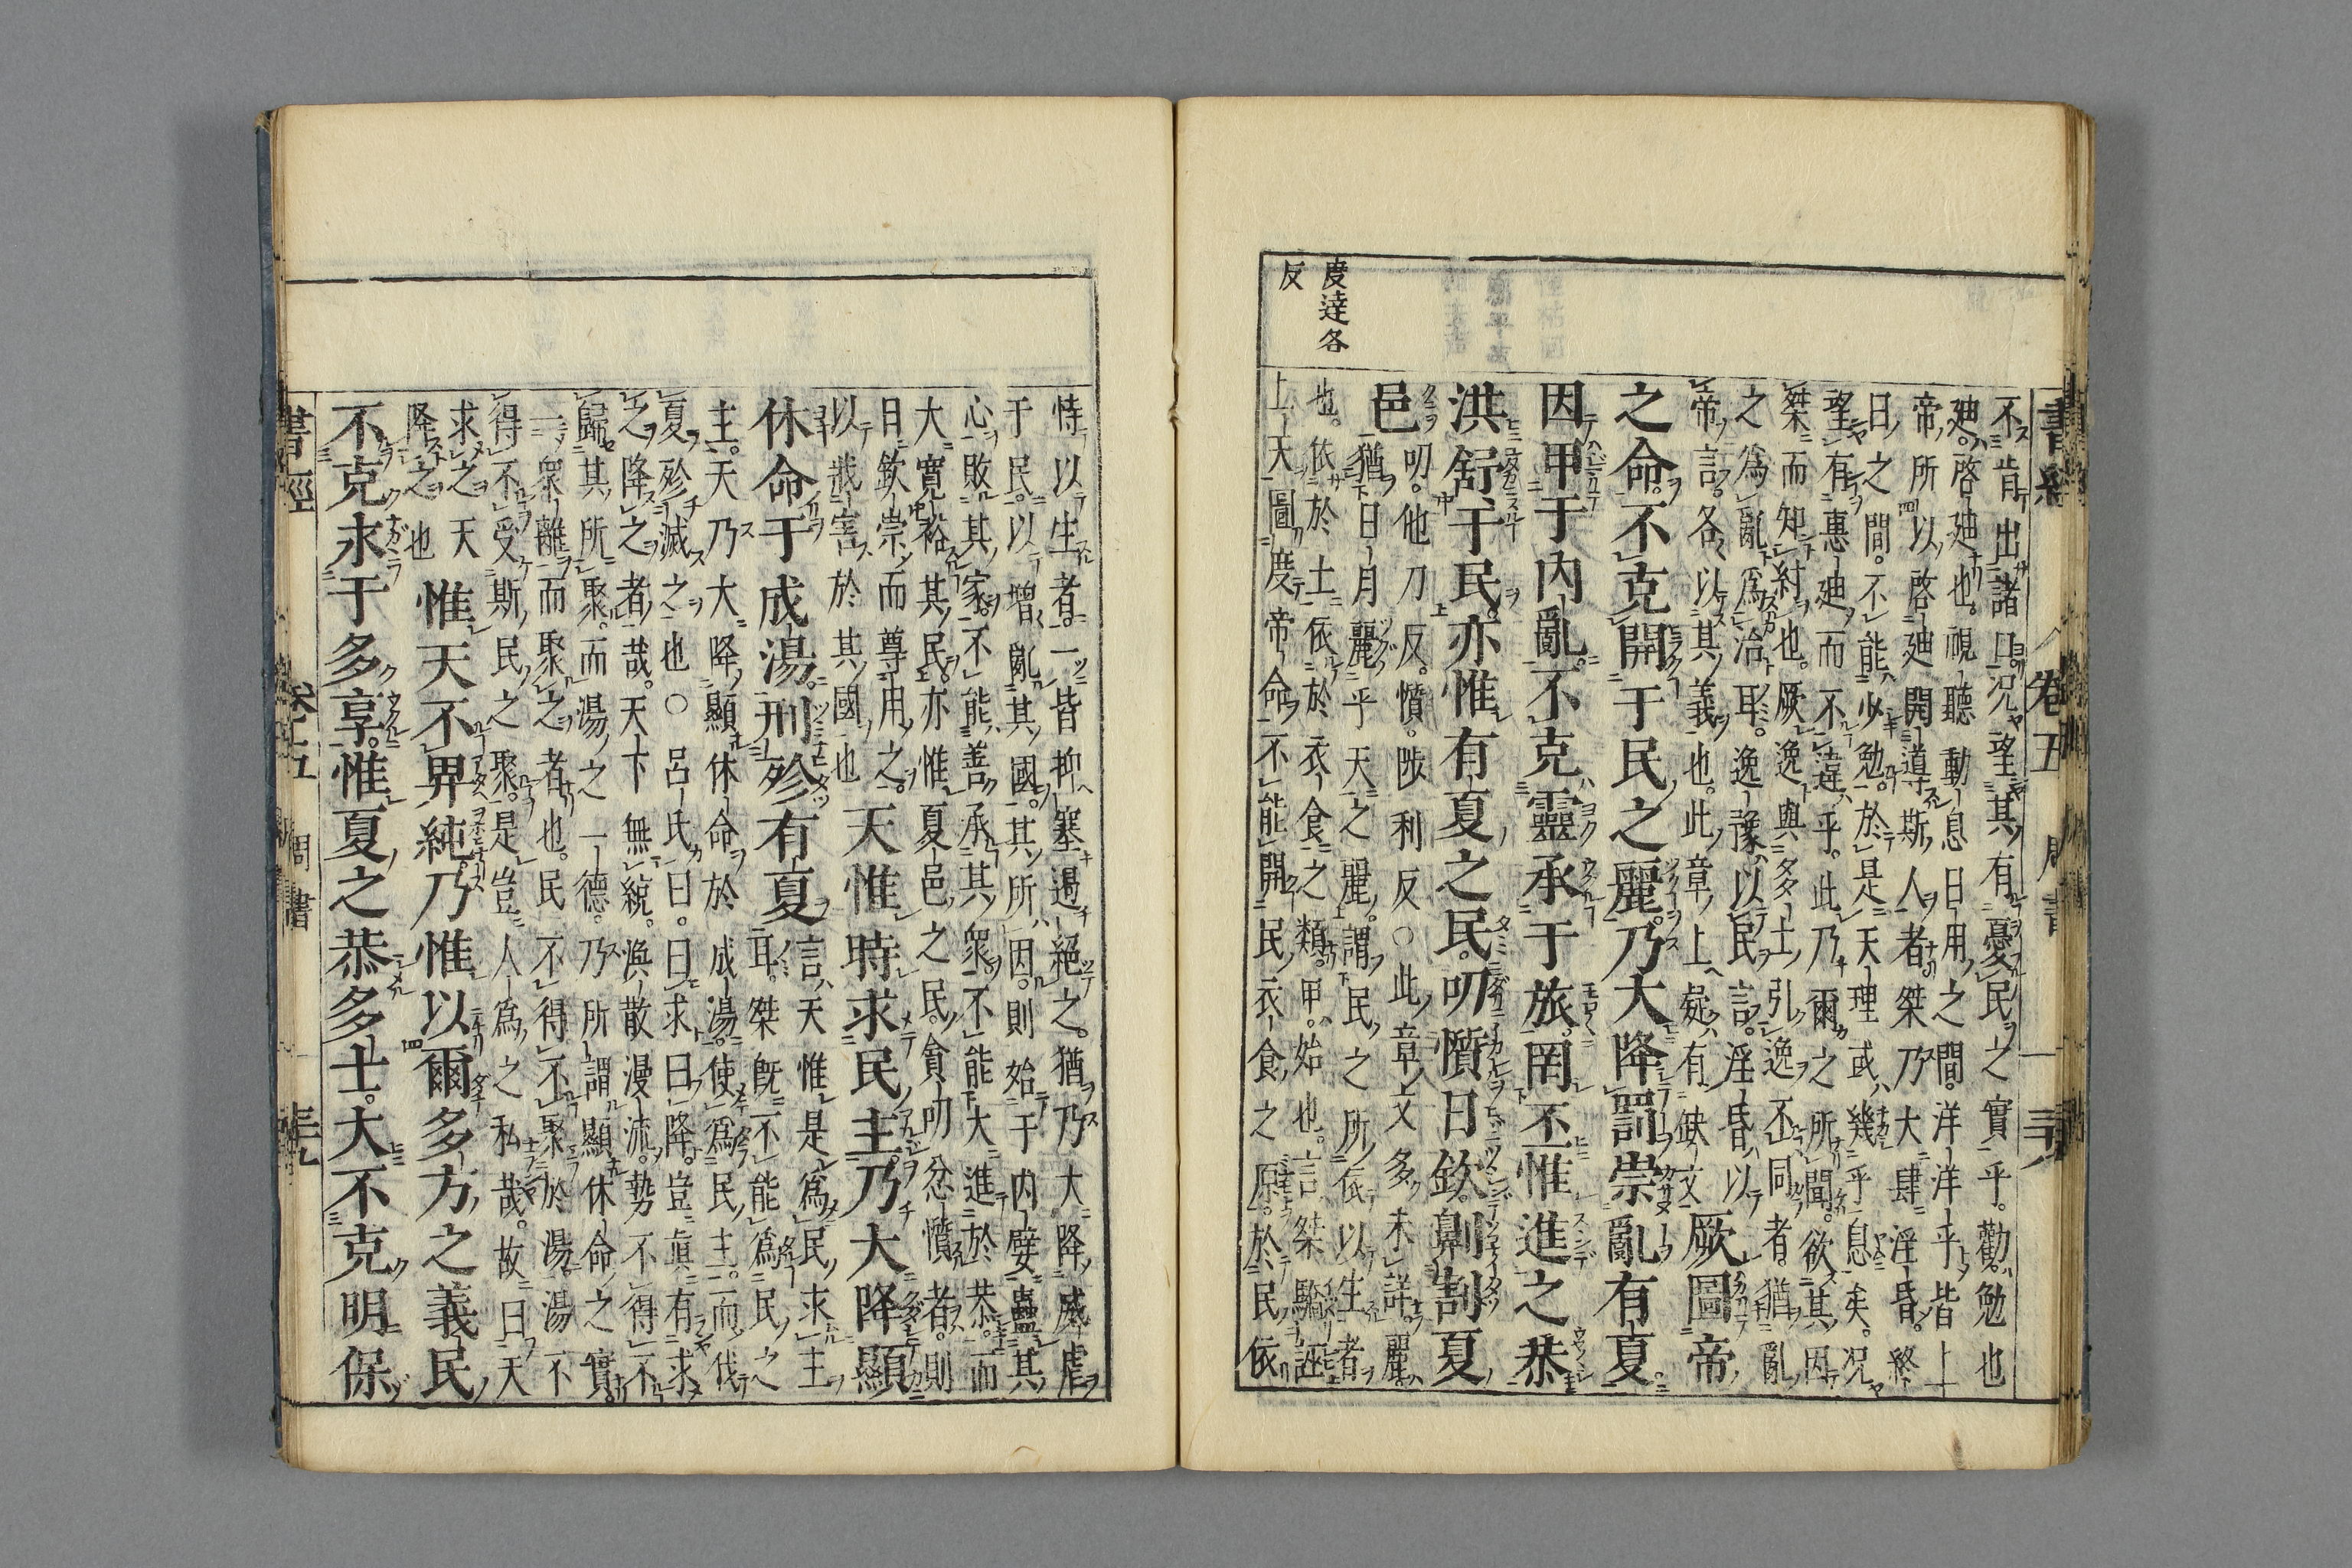 書經 卷五 周書
不肯出諸口況望其有憂民之實乎勸勉也
廸啓廸也視聽動息日用之間洋洋乎皆上
帝所以啓廸開道斯人者桀乃大肆淫昏終
日之間不能少勉於是天理或幾乎息矣況
望有惠廸而不違乎此乃爾之所聞欲其因
桀而知紂也厥逸與多士引逸不同者猶亂
之爲亂爲治耳逸豫以民言淫昏以
帝言各以其義也此章上疑有缺文
厥圖帝
之命。不克開于民之麗。乃大降罰崇亂有夏。
因甲于内亂。不克靈承于旅。罔丕惟進之恭
洪舒于民。亦惟有夏之民。叨懫日欽。劓割夏
邑
叨。他刀反。懫。陟利反○此章文多未詳。麗。
猶日月麗乎天之麗。謂民之所依以生者
也。依於土依於衣食之類。甲。始也。言桀驕誣
上天圖度帝命不能開民衣食之原。於民依
度達各
反
恃以生者。一皆抑塞遏絶之。猶乃大降威虐
于民。以增亂其國。其所因。則始于内嬖蠱其
心敗其家。不能善承其衆。不能大進於恭。而
大寬裕其民。亦惟夏邑之民。貪叨忿懫者。則
日欽崇而尊用之。
以戕害於其國也
天惟時求民主。乃大降顯
休命于成湯。刑殄有夏
言天惟是爲民求主
耳。桀旣不能爲民之
主。天乃大降顯休命於成湯。使爲民主。而伐
夏殄滅之也○呂氏曰。曰求曰降。豈眞有求
之降之者哉。天下無統。渙散漫流。勢不得不
歸其所聚。而湯之一德。乃所謂顯休命之實。
一衆離而聚之者也。民不得不聚於湯。湯不
得不受斯民之聚。是豈人爲之私哉。故曰天
求之天
降之也
惟天不畀純。乃惟以爾多方之義民
不克永于多享。惟夏之恭多士。大不克明保
書經 卷之五 周書 三十九